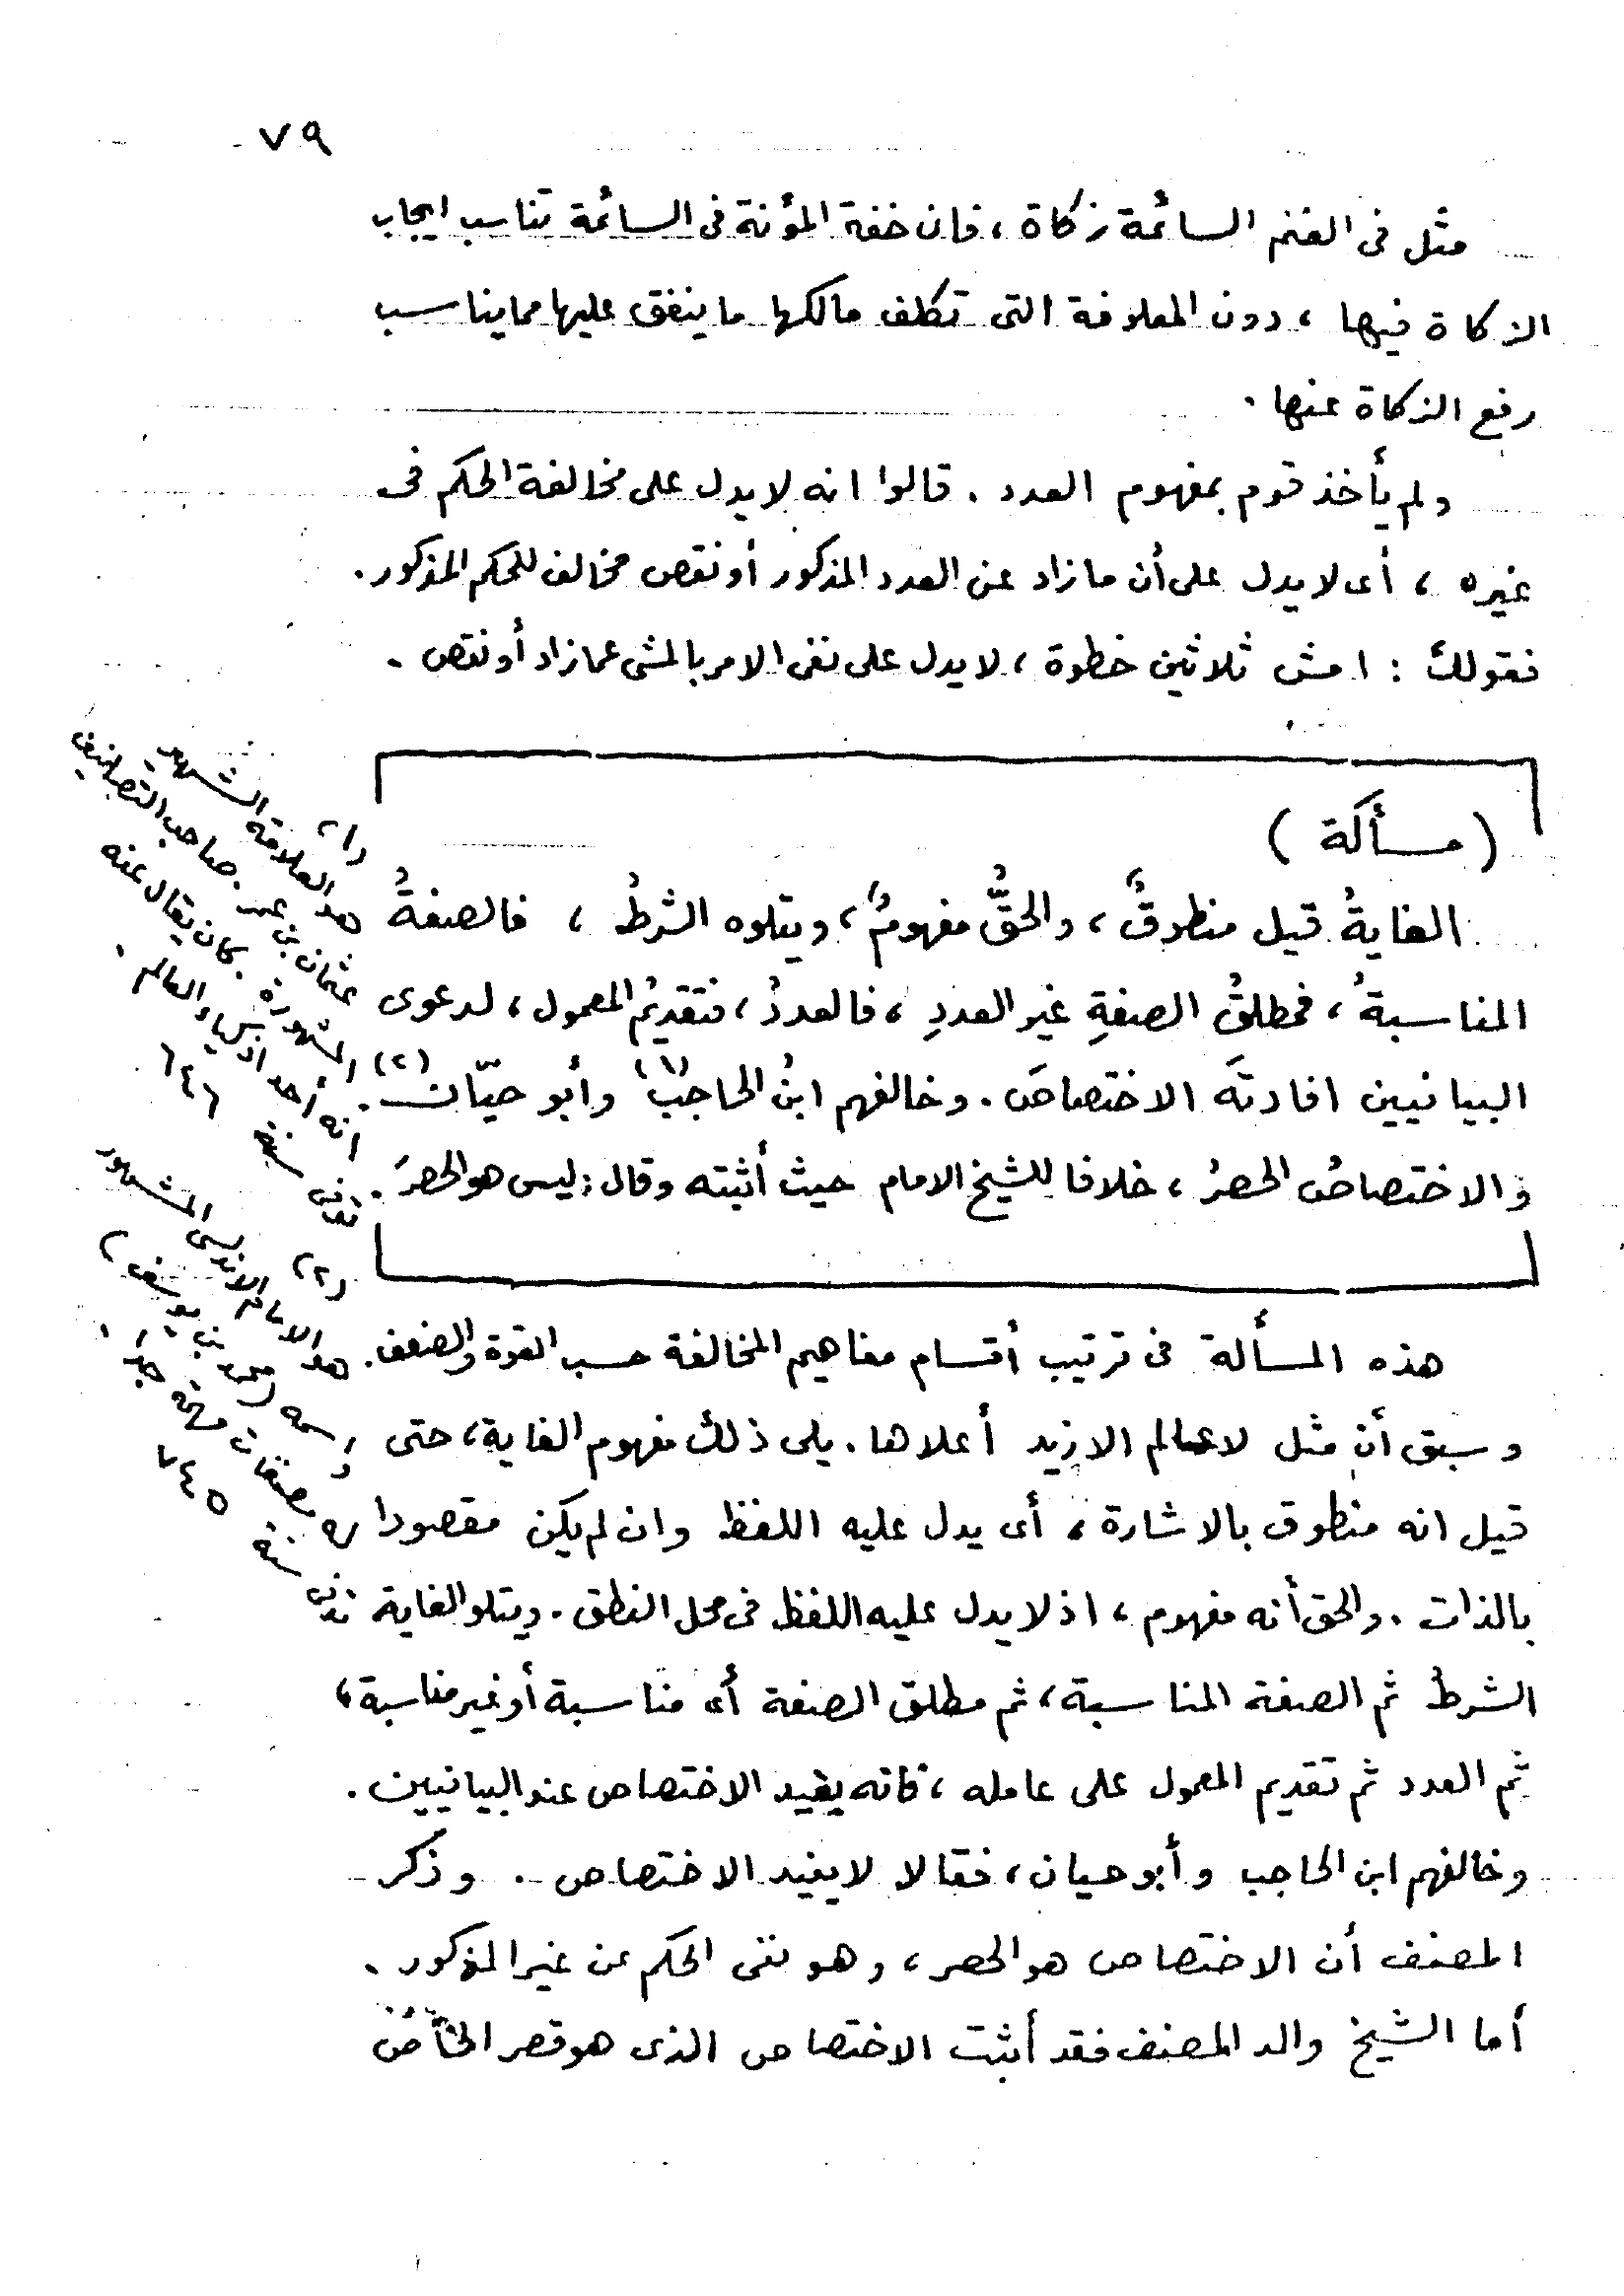 ٧٩
مثل فى الغنم السائمة زكاة ، فان خفة المؤنة فى السائمة تناسب ايجاب
الزكاة فيها ، دون المعلوفة التى تكلف مالكها ما ينفق عليها مما يناسب
رفع الزكاة عنها .
ولم يأخذ قوم بمفهوم العدد . قالوا انه لا يدل على مخالفة الحكم فى
غيره ، أى لا يدل على أن ما زاد عن العدد المذكور أو نقص مخالف للحكم المذكور .
فقولك : امش ثلاثين خطوة ، لا يدل على نفى الامر بالمشى عما زاد أو نقص .
( مسألة )
الغايةُ قيل منطوقٌ ، والحقُّ مفهومٌ ، ويتلوه الشرطُ ، فالصفةُ
المناسبةُ ، فمطلقُ الصفةِ غيرِ العددِ ، فالعددُ ، فتقديمُ المعمول ، لدعوى
البيانيين افادتَه الاختصاصَ . وخالفهم ابنُ الحاجب (١) وأبو حيّان (٢) .
والاختصاصُ الحصرُ ، خلافا للشيخ الامام حيث أثبته وقال : ليس هو الحصرَ .
هذه المسألة فى ترتيب أقسام مفاهيم المخالفة حسب القوة والضعف .
وسبق أن مثل لا عالم الا زيد أعلاها . يلى ذلك مفهوم الغاية ، حتى
قيل انه منطوق بالاشارة ، أى يدل عليه اللفظ وان لم يكن مقصودا
بالذات . والحق أنه مفهوم ، اذ لا يدل عليه اللفظ فى محل النطق . ويتلو الغاية
الشرطُ ثم الصفة المناسبة ، ثم مطلق الصفة أى مناسبة أو غير مناسبة ،
ثم العدد ثم تقديم المعمول على عامله ، فانه يفيد الاختصاص عند البيانيين .
وخالفهم ابن الحاجب وأبو حيان ، فقالا لا يفيد الاختصاص . وذكر
المصنف أن الاختصاص هو الحصر ، وهو نفى الحكم عن غير المذكور .
أما الشيخ والد المصنف فقد أثبت الاختصاص الذى هو قصر الخاص
(١)
هو العلامة الشهير
عثمان بن عمر . صاحب التصانيف
المشهورة . كان يقال عنه
انه أحد اذكياء العالم .
توفى سنة ٦٤٦
(٢)
هو الامام الاندلسى المشهور
واسمه (محمد بن يوسف)
له مصنفات مهمة جداً .
توفى سنة ٧٤٥